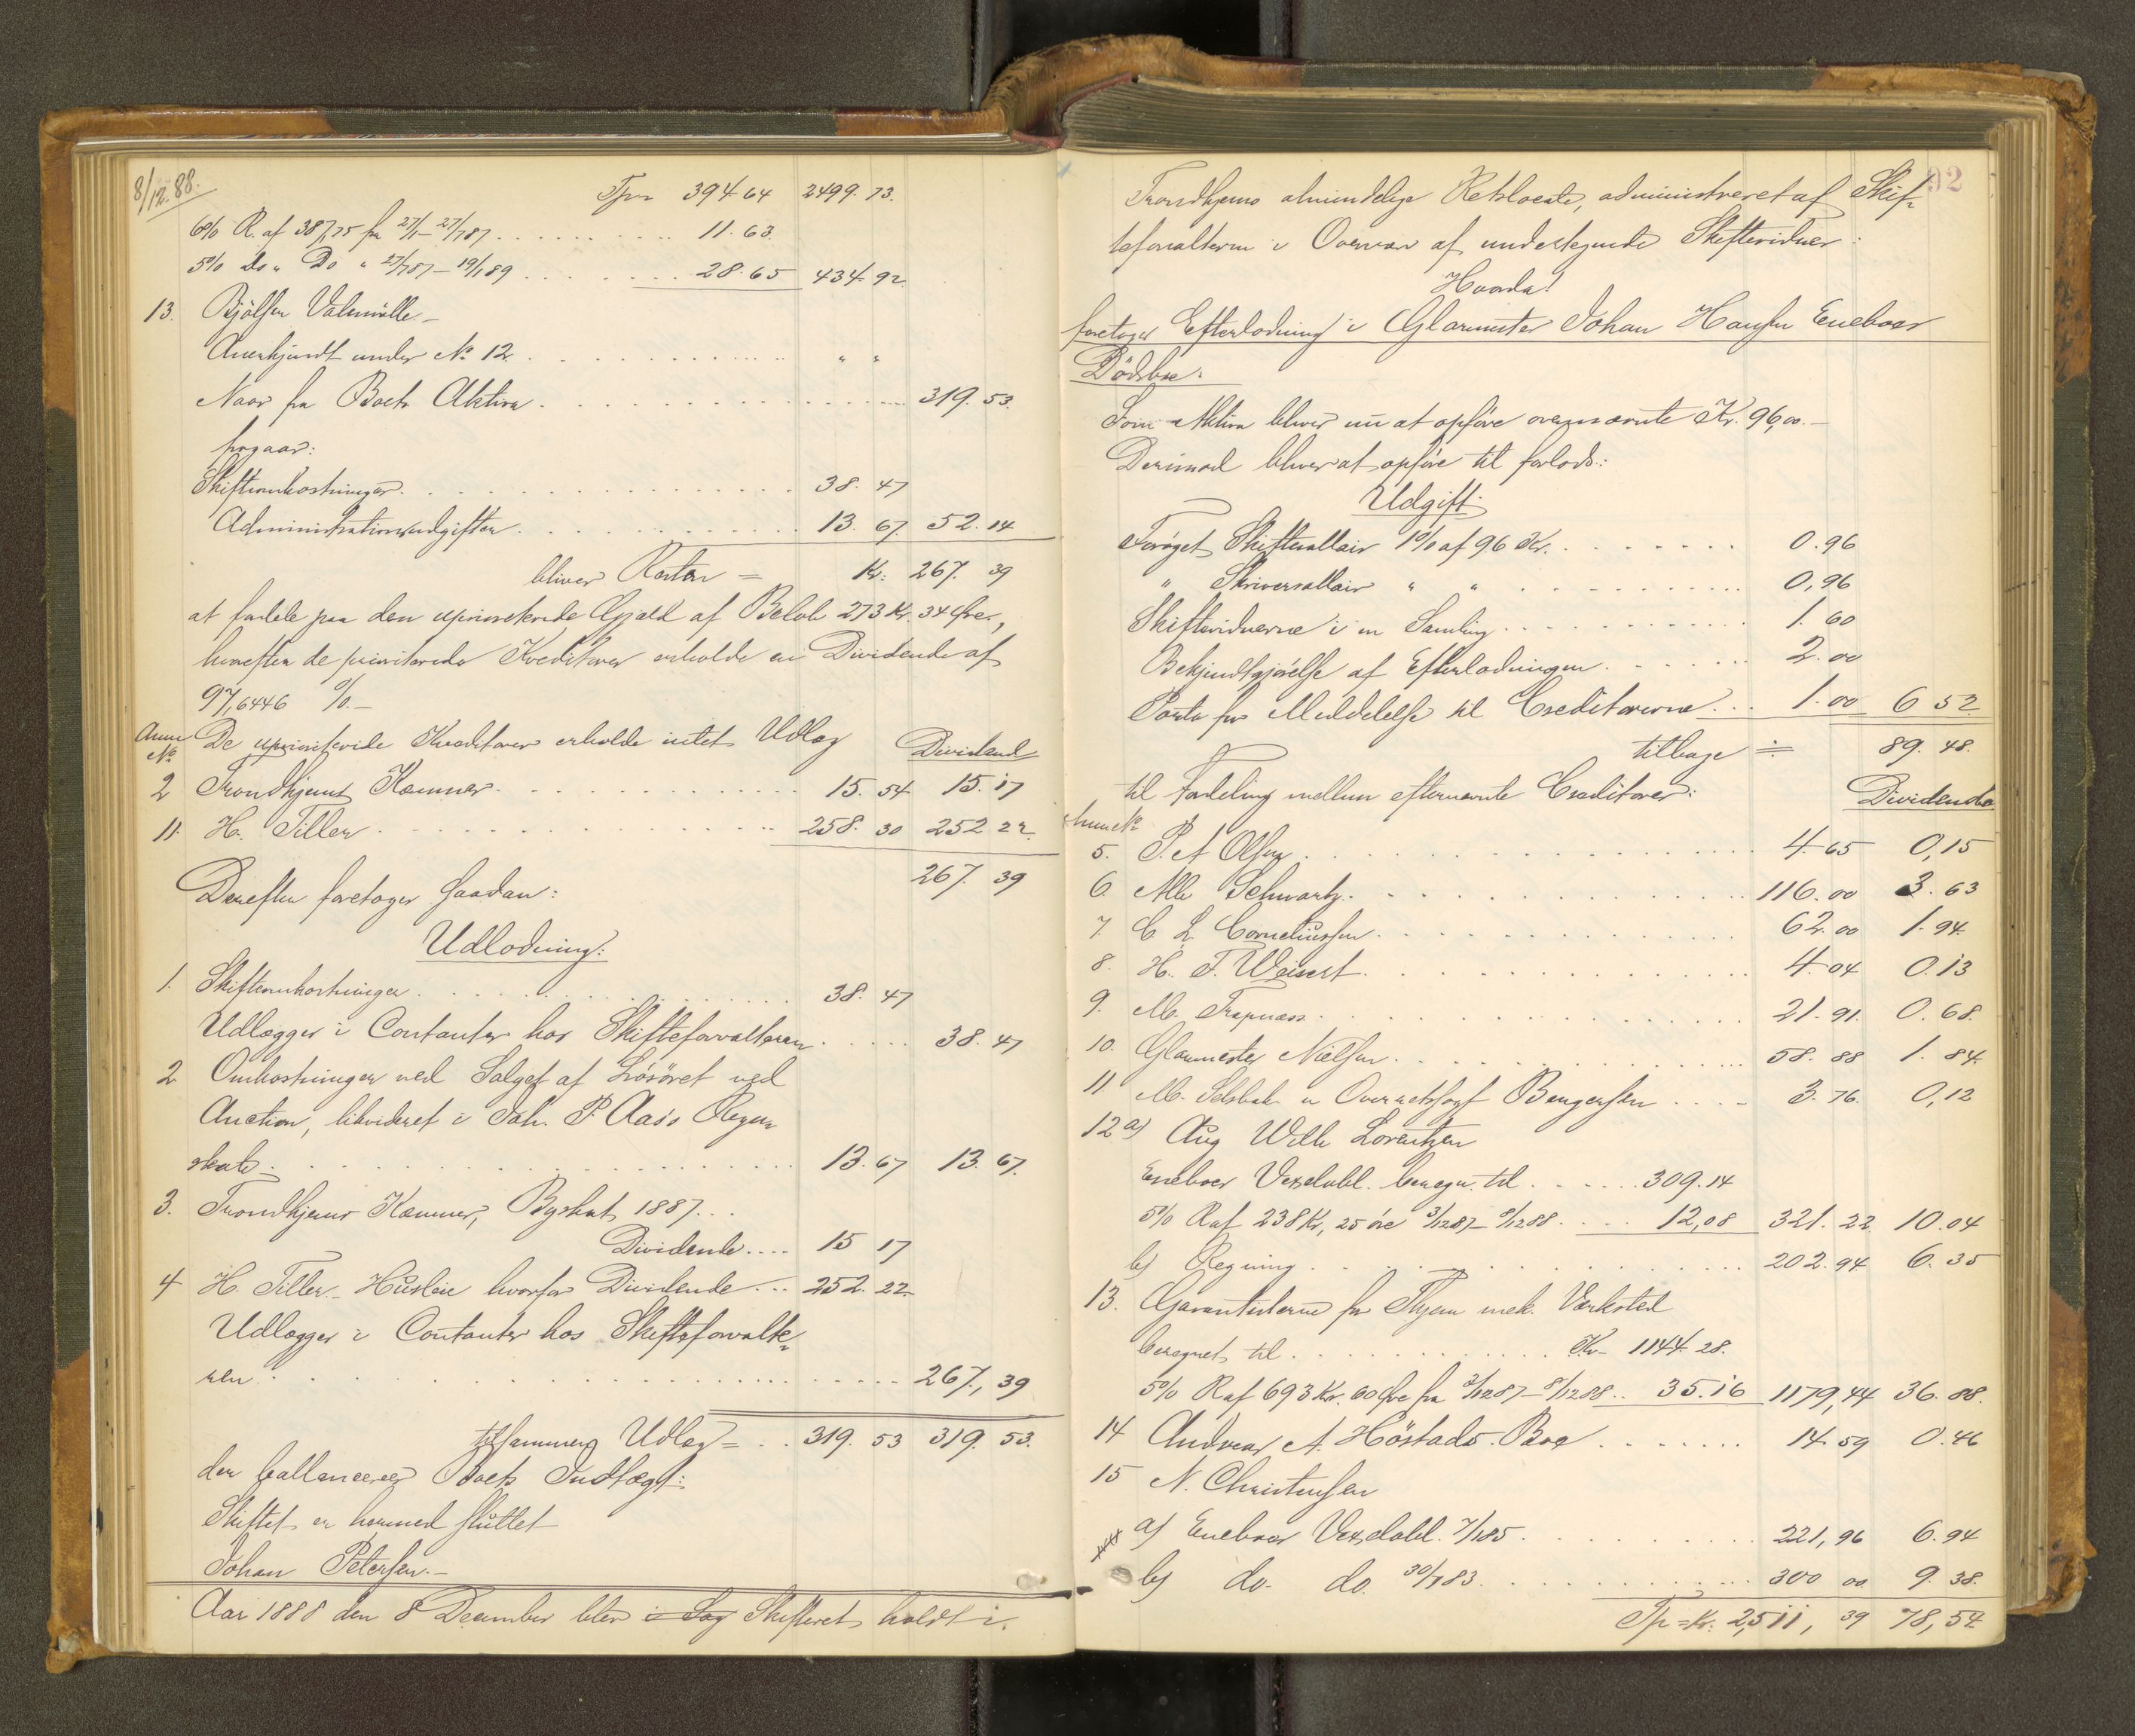 8/12.88.
Tpr 394.64 2499.73.
6% R. af 387,75 fra 27/1–27/7 87 . . . 11.63.
5% do „ Do „ 27/7 87 – 19/1 89 . . . 28.65 434.92
13. Bjölsen Valsemölle –
Anerkjendt under No 12 . . . „ „
Naar fra Boets Aktiva . . . 319.53.
fragaar:
Skifteomkostninger . . . 38.47
Administrationsudgifter . . . 13.67. 52.14
bliver Resten = Kr: 267.39
at fordele paa den upriviterede Gjæld af Beløb 273 Kr. 34 Øre,
hvorefter de prioriterede Kreditorer erholde en Dividende af
97,6446 %. –
Anm No De uprioriterede Kreditorer erholde intet Udlæg Dividend
2 Trondhjems Kæmner . . . 15.54 15.17
11. H. Tiller . . . 258.30 252 22.
267.39
Derefter foretoges saadan:
Udlodning:
1. Skifteomkostninger . . . 38.47
Udlægges i Contanter hos Skifteforvalteren . . . 38.47
2 Omkostninger ved Salget af Løsøret ved
Auction, likvideret i Joh. P. Aas's Regn-
skab . . . 13.67 13.67.
3. Trondhjems Kæmner, Byskat 1887 . . .
Dividende .... 15 17
4 H. Tiller – Husleie hvorfor Dividende ... 252.22.
Udlægges i Contanter hos Skifteforvalte-
ren . . . 267,39
tilsammen Udlæg = . . 319.53 319.53.
der ballancerer Boets Indtægt:
Skiftet er hermed sluttet
Johan Petersen. –
Aar 1888 den 8 December blev i Dag Skifteret holdt i
92
Trondhjems almindelige Retslocale, administreret af Skif-
teforvalteren i Overvær af undertegnede Skiftevidner:
Hvorda!
foretoges Efterlodning i Glarmester Johan Hansen Eneboes
Dödsbo:
Som Aktiva bliver nu at opføre ovennævnte Kr. 96,00. –
Derimod bliver at opføre til forlods:
Udgift:
Forøget Skiftesallair 1% af 96 Kr. . . . 0.96
„ Skriversallair „ „ . . . 0,96
Skiftevidnerne i en Samling . . . 1.60
Bekjendtgjörelse af Efterlodningen . . . 2.00
Porto for Meddelelse til Creditorerne . . . 1.00 6 52
tilbage ÷ 89.48.
til Fordeling mellem efternævnte Creditorer: Dividende
Anm No
5. P. A Olsen . . . 4.65 0,15
6 Alb Schwartz . . . 116.00 3.63
7. C L Corneliussen . . . 62.00 1.94.
8. H. F. Weisert . . . 4.04 0.13
9. M. Trapnæs . . . 21.91. 0.68.
10. Glarmester Nielsen . . . 58.88 1.84
11 M. Selsbak v Overretssagf Bengersen . . . 3.76. 0,12
12 a) Aug Wilh Lorentzen
Eneboes Vexelobl. beregn. til . . . 309.14
5% R af 238 Kr, 25 öre 3/12 87 – 8/12 88 . . . 12,08 321.22 10.04
b) Regning . . . 202.94 6.35
13. Garantisterne for Thjem mek. Værksted
beregnet til . . . Kr – 1144 28.
5% R af 693 Kr. 60 Øre fra 3/12 87 – 8/12 88 .. 35.16 1179,44 36.88.
14 Andreas A. Höstads Boe . . . 14 59 0.46
15 N. Christensen
a) Eneboes Vexelobl. 7/1 85 . . . 221,96 6.94
b) do. do. 30/7 83 . . . 300 00 9.38.
Tp = Kr. 2,511,39 78,54